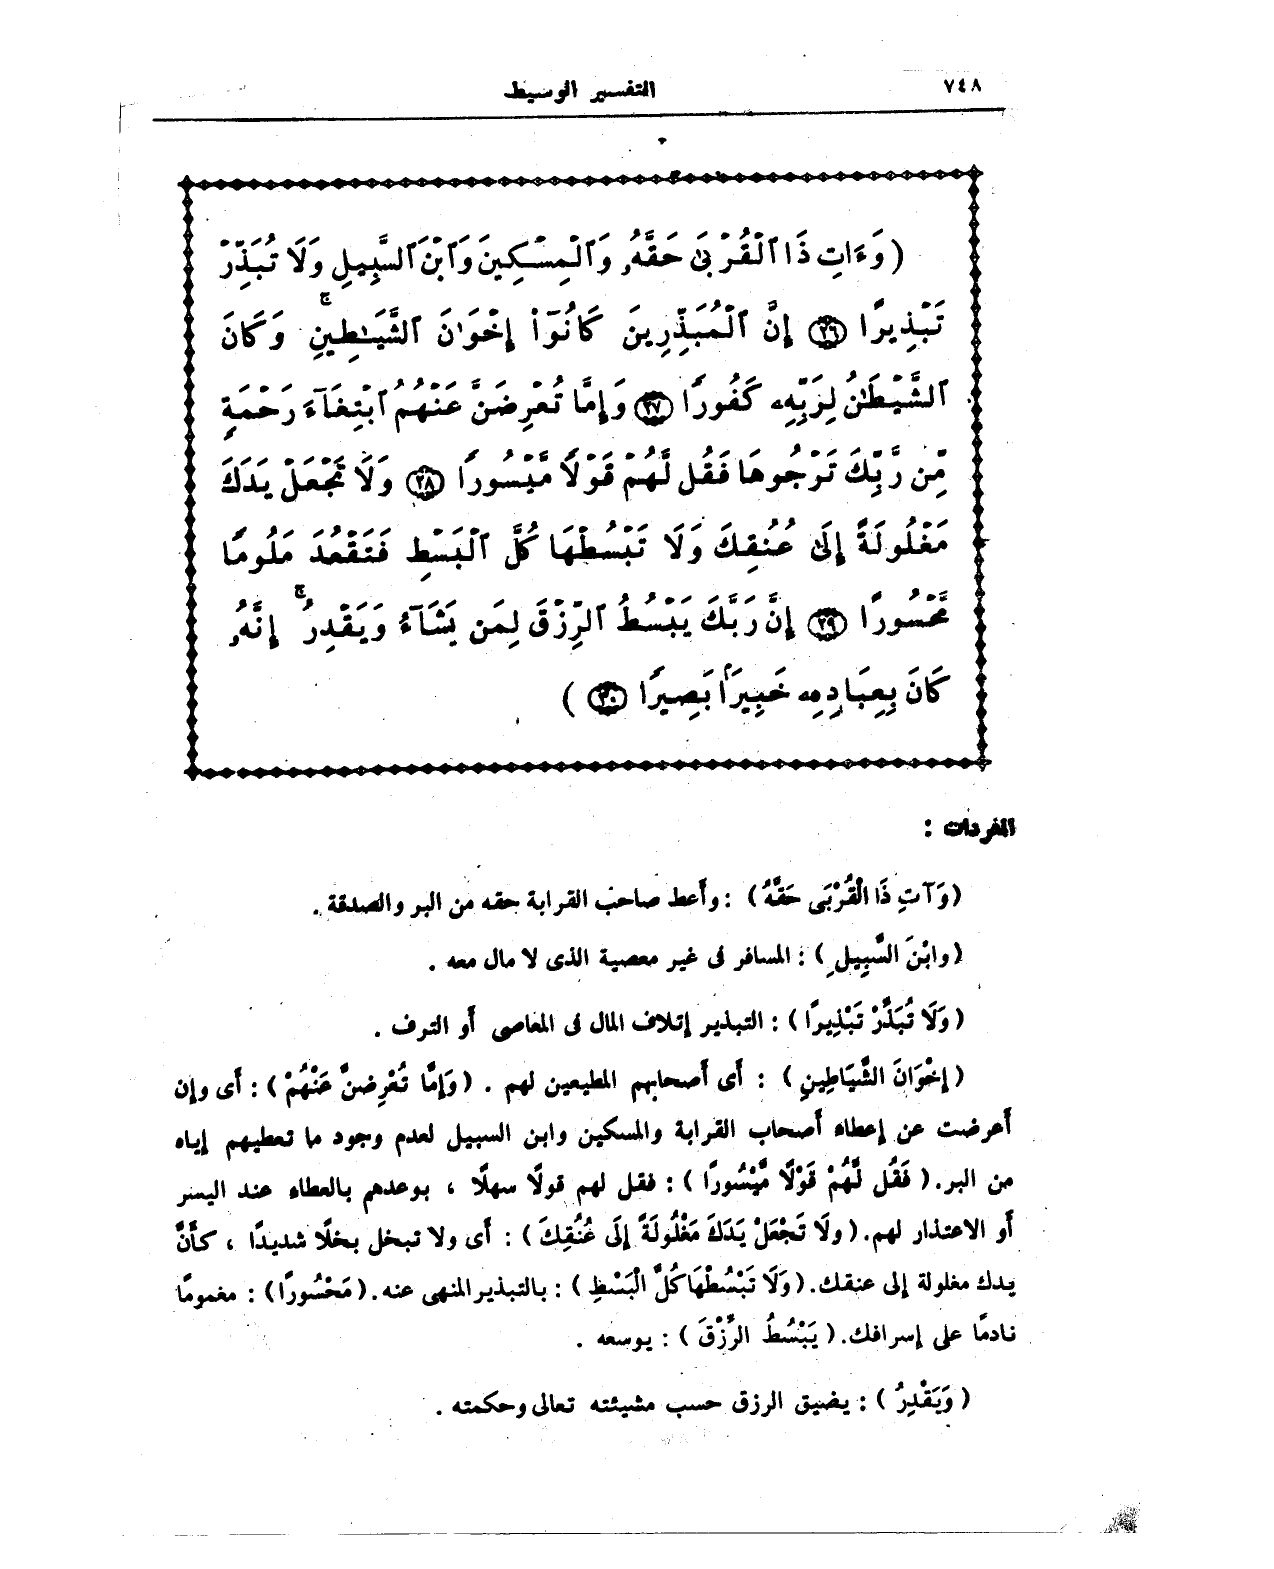 ٧٤٨
التفسير الوسيط
(وَءَاتِ ذَا ٱلۡقُرۡبَىٰ حَقَّهُۥ وَٱلۡمِسۡكِينَ وَٱبۡنَ ٱلسَّبِيلِ وَلَا تُبَذِّرۡ
تَبۡذِيرًا ٢٦ إِنَّ ٱلۡمُبَذِّرِينَ كَانُوٓاْ إِخۡوَٰنَ ٱلشَّيَٰطِينِۖ وَكَانَ
ٱلشَّيۡطَٰنُ لِرَبِّهِۦ كَفُورًا ٢٧ وَإِمَّا تُعۡرِضَنَّ عَنۡهُمُ ٱبۡتِغَآءَ رَحۡمَةٍ
مِّن رَّبِّكَ تَرۡجُوهَا فَقُل لَّهُمۡ قَوۡلًا مَّيۡسُورًا ٢٨ وَلَا تَجۡعَلۡ يَدَكَ
مَغۡلُولَةً إِلَىٰ عُنُقِكَ وَلَا تَبۡسُطۡهَا كُلَّ ٱلۡبَسۡطِ فَتَقۡعُدَ مَلُومًا
مَّحۡسُورًا ٢٩ إِنَّ رَبَّكَ يَبۡسُطُ ٱلرِّزۡقَ لِمَن يَشَآءُ وَيَقۡدِرُۚ إِنَّهُۥ
كَانَ بِعِبَادِهِۦ خَبِيرَۢا بَصِيرًا ٣٠)
المفردات :
(وَآتِ ذَا الْقُرْبَى حَقَّهُ) : وأعط صاحب القرابة حقه من البر والصدقة .
(وابْنَ السَّبِيلِ) : المسافر فى غير معصية الذى لا مال معه .
(وَلَا تُبَذِّرْ تَبْذِيرًا) : التبذير إتلاف المال فى المعاصى أو الترف .
(إِخْوَانَ الشَّيَاطِينِ) : أى أصحابهم المطيعين لهم . (وَإِمَّا تُعْرِضَنَّ عَنْهُمْ) : أى وإن
أعرضت عن إعطاء أصحاب القرابة والمسكين وابن السبيل لعدم وجود ما تعطيهم إياه
من البر. (فَقُل لَّهُمْ قَوْلًا مَّيْسُورًا) : فقل لهم قولًا سهلًا ، بوعدهم بالعطاء عند اليسر
أو الاعتذار لهم. (ولَا تَجْعَلْ يَدَكَ مَغْلُولَةً إِلَى عُنُقِكَ) : أى ولا تبخل بخلًا شديدًا ، كأنَّ
يدك مغلولة إلى عنقك. (وَلَا تَبْسُطْهَا كُلَّ الْبَسْطِ) : بالتبذير المنهى عنه. (مَحْسُورًا) : مغمومًا
نادمًا على إسرافك. (يَبْسُطُ الرِّزْقَ) : يوسعه .
(وَيَقْدِرُ) : يضيق الرزق حسب مشيئته تعالى وحكمته .